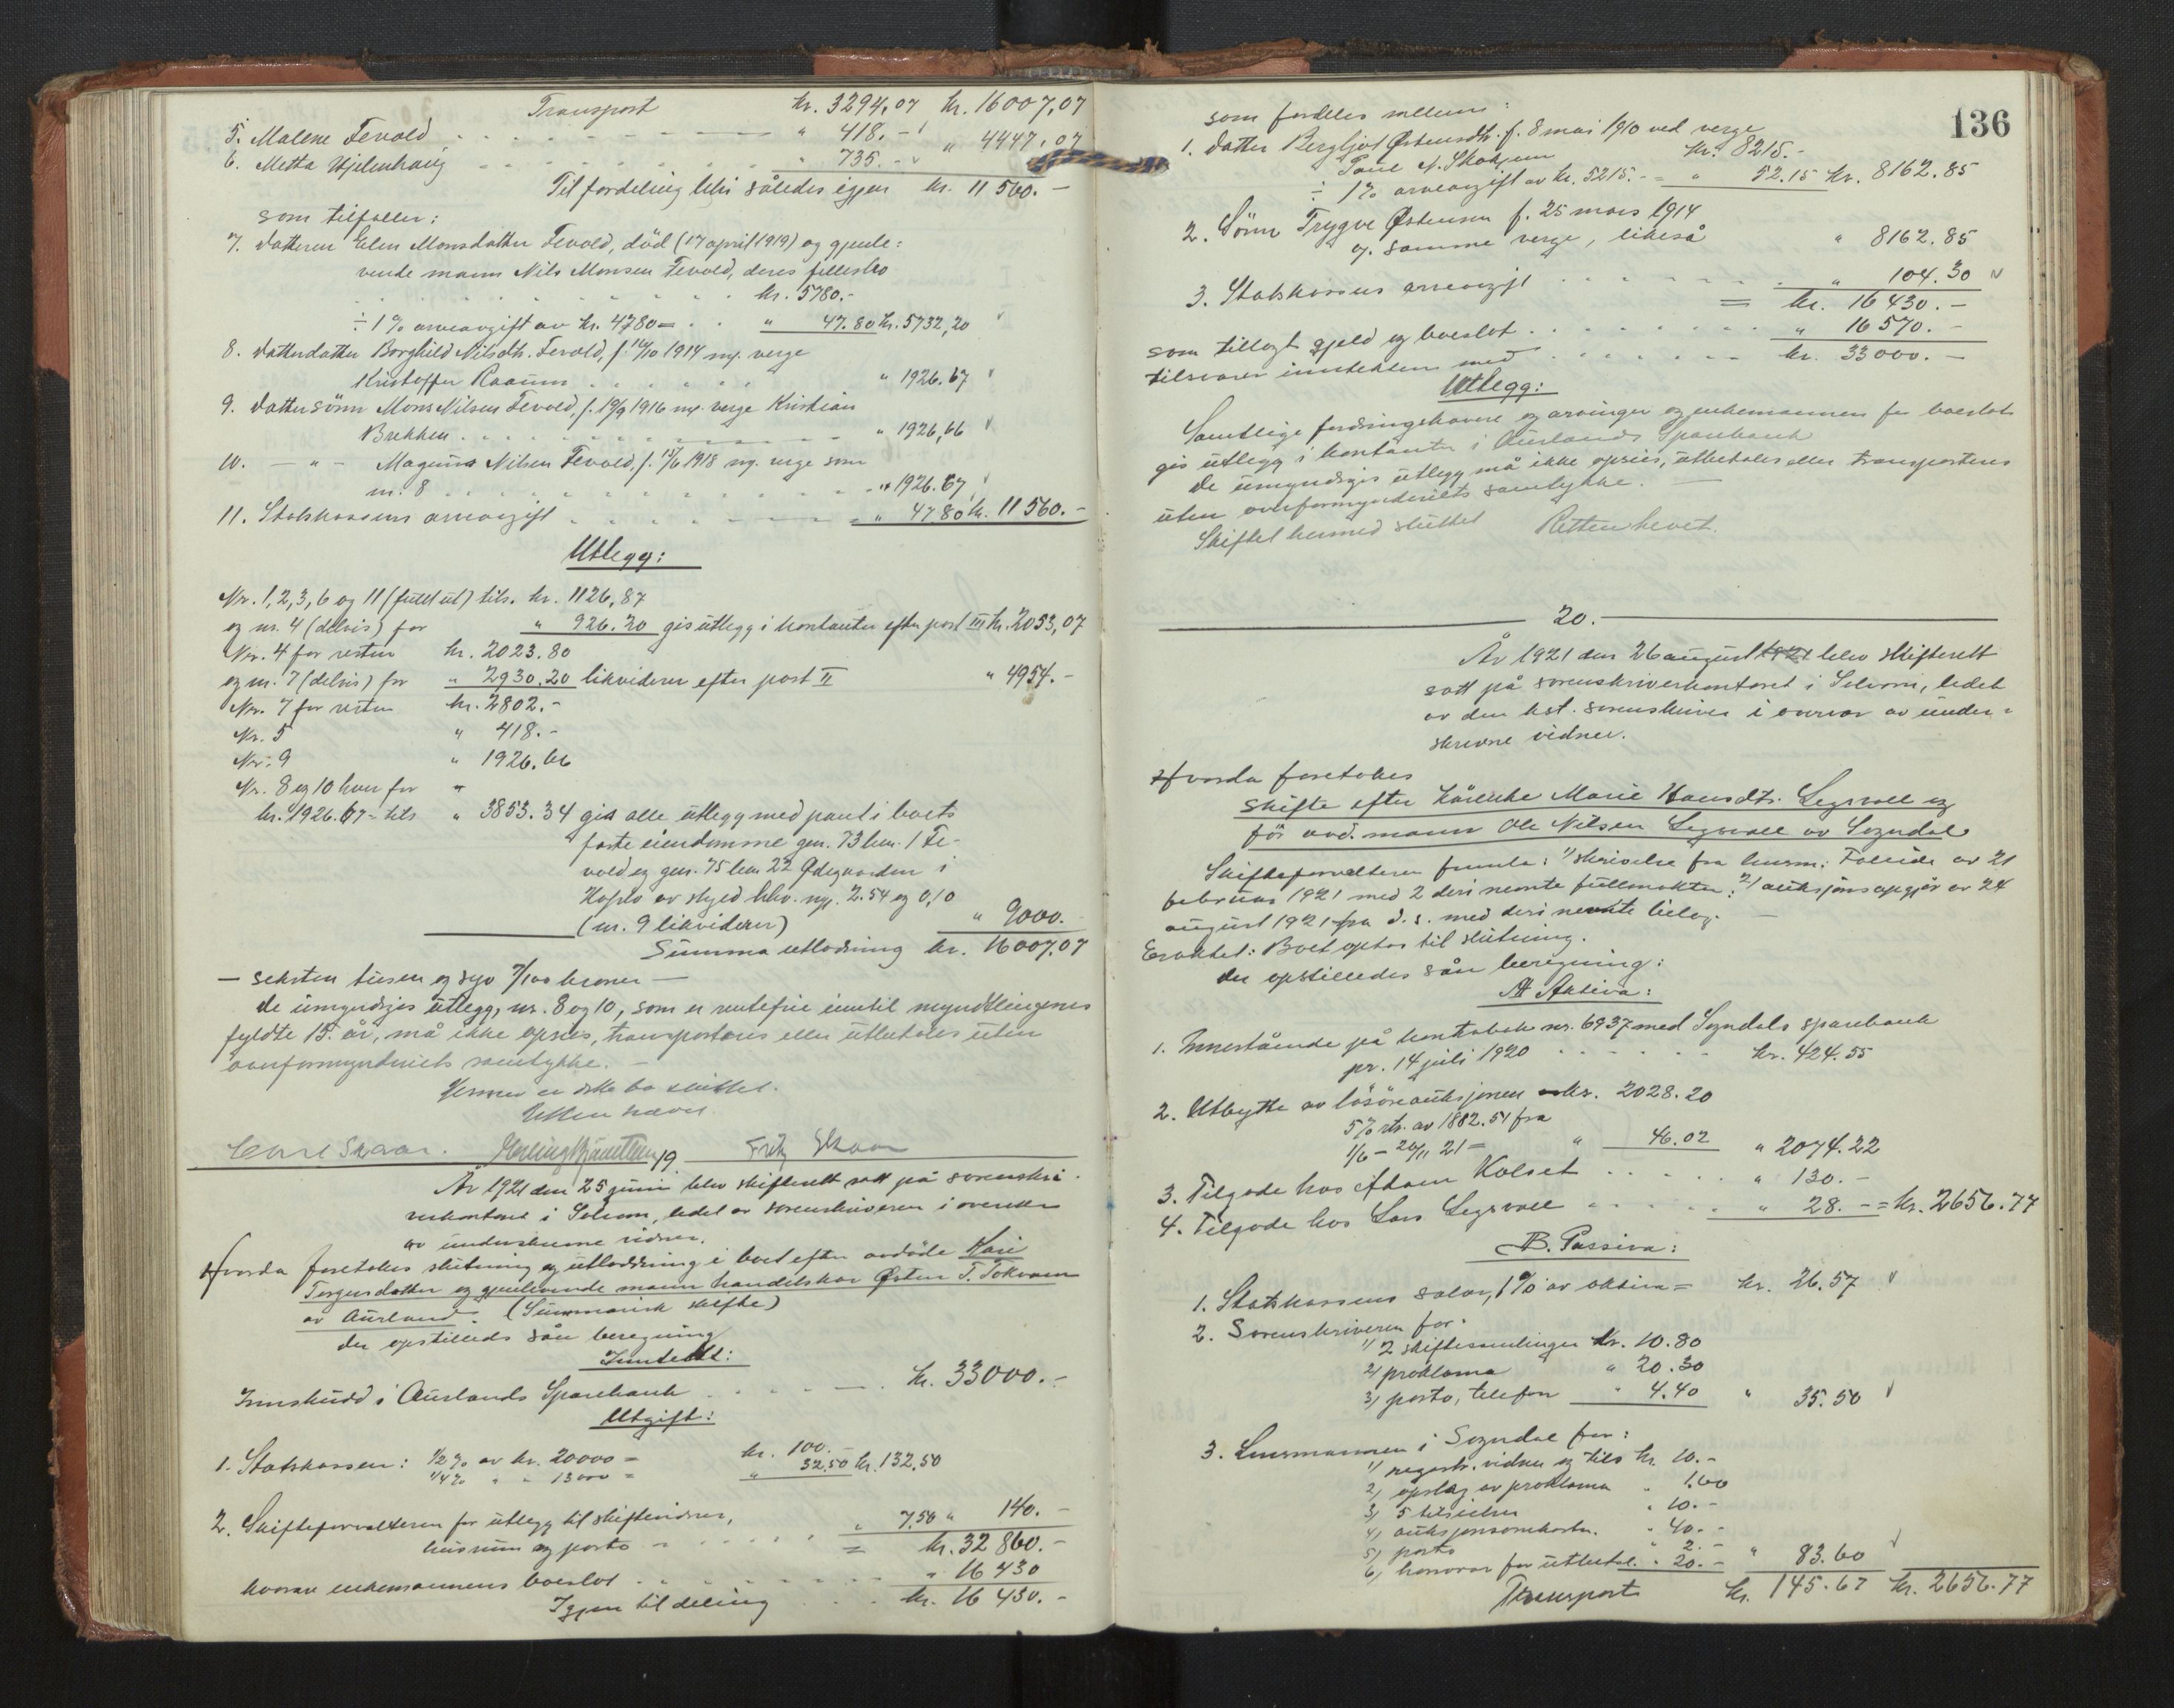 Transport kr. 3294,07 kr. 16007,07
5. Malene Fevold " 418.- " 4447,07
6. Metta Hjelmhaug " 735.-
Til fordeling blir således igjen kr. 11 560.-
som tilfaller:
7. Datteren Elen Monsdatter Fevold, död (17 april 1919) og gjenle-
vende mann Nils Monsen Fevold, deres fellesbo
kr. 5780.-
÷ 1 % arveavgift av kr. 4780 = " 47.80 kr. 5732,20
8. Datterdatter Borghild Nilsdtr. Fevold, f. 14/10 1914 ny. verge
Kristoffer Raaum " 1926.67
9. Dattersönn Mons Nilsen Fevold, f. 19/9 1916 ny. verge Kristian
Brekken " 1926,66
10. — " — Magnus Nilsen Fevold, f. 15/6 1918 ny. verge som
nr. 8 " 1926.67
11. Statskassens arveavgift " 47.80 kr. 11 560.-
Utlegg:
Nr. 1, 2, 3, 6 og 11 (fullt ut) tils. kr. 1126,87
og nr. 4 (delvis) for " 926.20 gis utlegg i kontanter efter post III kr. 2053,07
Nr. 4 for resten kr. 2023.80
og nr. 7 (delvis) for " 2930.20 likviderer efter post II " 4954.-
Nr. 7 for resten kr. 2802.-
Nr. 5 " 418.-
Nr. 9 " 1926.66
Nr. 8 og 10 hver for "
kr. 1926.67 = tils " 3853.34 gis alle utlegg med pant i boets
faste eiendomme gnr. 73 bnr. 1 Fe-
vold og gnr. 75 bnr. 22 Ödegaarden i
Hafslo av skyld hhv. ny. 2.54 og 0,10
(nr. 9 likviderer) " 9000.
Summa utlodning kr. 16007.07
— seksten tusen og syv 7/100 kroner —
De umyndiges utlegg, nr. 8 og 10, som er rentefrie inntil myndlingenes
fyldte 15. år, må ikke opsies, transporteres eller utbetales uten
overformynderiets samtykke. -
Hermed er dette bo sluttet.
Retten hævet.
Carl Skaar. Fritz Skaar
19.
År 1921 den 25 juni blev skifterett satt på sorenskri-
verkontoret i Solvorn, ledet av sorenskriveren i overvær
av underskrevne vidner.
Hvorda foretokes slutning og utloddning i boet efter avdöde Kari
Torgersdatter og gjenlevende mann handelskar Østen T. Tokvam
av Aurland. (Summarisk skifte)
Der opstilleds sån beregning
Inntekt:
Innskudd i Aurlands Sparebank kr. 33000.-
Utgift:
1. Statskassen: 1/2 % av kr. 20000 = kr. 100.-
1/4 % " " 13000 = " 32.50 kr. 132,50
2. Skifteforvalteren for utlegg til skiftevidner,
husrum og porto " 7,50 " 140.-
= kr. 32 860.-
hvorav enkemannens boeslot " 16 430
Igjen til deling kr. 16 430.-
136
som fordeles mellem:
1. Datter Bergljot Østensdtr. f. 8 mai 1910 ved verge
Paul N. Skahjem kr. 8215.-
÷ 1% arveavgift av kr. 5215.- = " 52.15 kr. 8162.85
2. Sönn Trygve Østensen f. 25 mars 1914
og samme verge, likeså " 8162.85
3. Statskassens arveavgift " 104.30
= kr. 16 430.-
som tillagt gjeld og boeslot " 16 570.-
tilsvarer inntekten med kr. 33 000.-
Utlegg:
Samtlige fordringshavere og arvinger og enkemannen for boeslot
gis utlegg i kontanter i Aurlands Sparebank
De umyndiges utlegg må ikke opsies, utbetales eller transporteres
uten overformynderiets samtykke. —
Skiftet hermed sluttet Retten hevet.
20.
År 1921 den 26 august 1921 blev skifterett
satt på sorenskriverkontoret i Solvorn, ledet
av den kst. sorenskriver i overvær av under-
skrevne vidner.
Hvorda foretokes
skifte efter Marie Hansdtr. Legrvoll og
för avd. mann Ole Nilsen Legrvoll av Sogndal
Skifteforvalteren fremla: 1/ skrivelse fra lensm. Foleide av 21
februar 1921 med 2 deri nevnte fullmakter. 2/ auksjonsopgjör av 24
august 1921 fra d.s. med deri nevnte bielag. —
Eraktet: Boet optas til slutning.
Der opstilledes sån beregning:
A Aktiva:
1. Innestående på kontrabok nr. 6937 med Sogndals sparebank
pr. 14 juli 1920 kr. 424.55
2. Utbytte av lösöreauksjonen kr. 2028.20
5% rts. av 1882.51 fra
1/6 - 20/11 21 = " 46.02 " 2074.22
3. Tilgode hos Adam Kolset " 130.-
4. Tilgode hos Lars Legrvoll " 28.- = kr. 2656.77
B. Passiva:
1. Statskassens salar, 1% av aktiva = kr. 26.57
2. Sorenskriveren for:
1/ 2 skiftesamlinger kr. 10.80
2/ proklama " 20.30
3/ porto, telefon " 4.40 " 35.50
3. Lensmannen i Sogndal for:
1/ registr. vidner og tils kr. 10.-
2/ opslag av proklama " 1.60
3/ 5 tilsielser " 10.-
4/ auksjonsomkostn. " 40.-
5/ porto " 2.-
6/ honorar for utbetal. " 20.- " 83.60
Transport kr. 145.67 kr. 2656.77